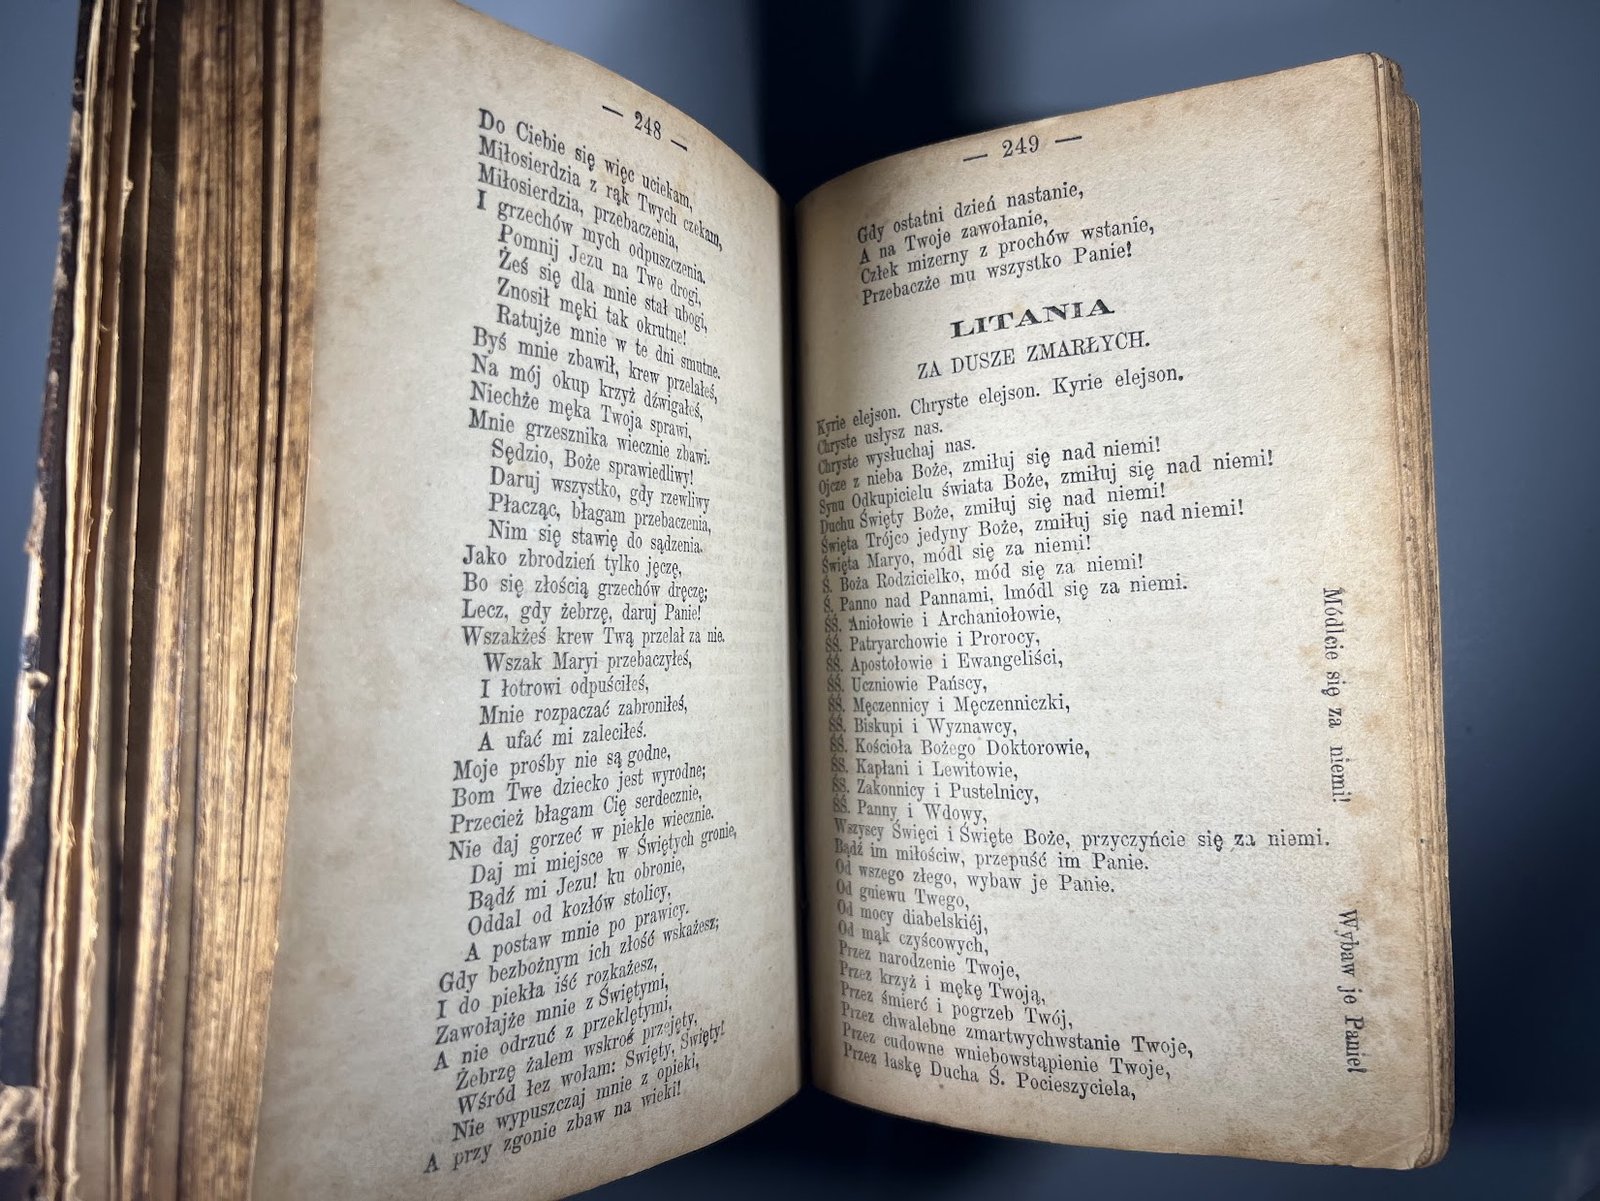 — 248 —
Do Ciebie się więc uciekam,
Miłosierdzia z rąk Twych czekam,
Miłosierdzia, przebaczenia,
I grzechów mych odpuszczenia.
Pomnij Jezu na Twe drogi,
Żeś się dla mnie stał ubogi,
Znosił męki tak okrutne!
Ratujże mnie w te dni smutne.
Byś mnie zbawił, krew przelałeś,
Na mój okup krzyż dźwigałeś,
Niechże męka Twoja sprawi,
Mnie grzesznika wiecznie zbawi.
Sędzio, Boże sprawiedliwy!
Daruj wszystko, gdy rzewliwy
Płacząc, błagam przebaczenia,
Nim się stawię do sądzenia.
Jako zbrodzień tylko jęczę,
Bo się złością grzechów dręczę;
Lecz, gdy żebrzę, daruj Panie!
Wszakżeś krew Twą przelał za nie.
Wszak Maryi przebaczyłeś,
I łotrowi odpuściłeś,
Mnie rozpaczać zabroniłeś,
A ufać mi zaleciłeś.
Moje prośby nie są godne,
Bom Twe dziecko jest wyrodne;
Przecież błagam Cię serdecznie,
Nie daj gorzeć w piekle wiecznie.
Daj mi miejsce w Świętych gronie,
Bądź mi Jezu! ku obronie,
Oddal od kozłów stolicy,
A postaw mnie po prawicy.
Gdy bezbożnym ich złość wskażesz;
I do piekła iść rozkażesz,
Zawołajże mnie z Świętymi,
A nie odrzuć z przeklętymi,
Żebrzę żalem wskroś przejęty,
Wśród łez wołam: Święty, Święty!
Nie wypuszczaj mnie z opieki,
A przy zgonie zbaw na wieki!
— 249 —
Gdy ostatni dzień nastanie,
A na Twoje zawołanie,
Człek mizerny z prochów wstanie,
Przebaczże mu wszystko Panie!
LITANIA
ZA DUSZE ZMARŁYCH.
Kyrie elejson. Chryste elejson. Kyrie elejson.
Chryste usłysz nas.
Chryste wysłuchaj nas.
Ojcze z nieba Boże, zmiłuj się nad niemi!
Synu Odkupicielu świata Boże, zmiłuj się nad niemi!
Duchu Święty Boże, zmiłuj się nad niemi!
Święta Trójco jedyny Boże, zmiłuj się nad niemi!
Święta Maryo, módl się za niemi!
Ś. Boża Rodzicielko, mód się za niemi!
Ś. Panno nad Pannami, lmódl się za niemi.
ŚŚ. Aniołowie i Archaniołowie,
ŚŚ. Patryarchowie i Prorocy,
ŚŚ. Apostołowie i Ewangeliści,
ŚŚ. Uczniowie Pańscy,
ŚŚ. Męczennicy i Męczenniczki,
ŚŚ. Biskupi i Wyznawcy,
ŚŚ. Kościoła Bożego Doktorowie,
ŚŚ. Kapłani i Lewitowie,
ŚŚ. Zakonnicy i Pustelnicy,
ŚŚ. Panny i Wdowy,
Módlcie się za niemi!
Wszyscy Święci i Święte Boże, przyczyńcie się za niemi.
Bądź im miłościw, przepuść im Panie.
Od wszego złego, wybaw je Panie.
Od gniewu Twego,
Od mocy diabelskiéj,
Od mąk czyścowych,
Przez narodzenie Twoje,
Przez krzyż i mękę Twoją,
Przez śmierć i pogrzeb Twój,
Przez chwalebne zmartwychwstanie Twoje,
Przez cudowne wniebowstąpienie Twoje,
Przez łaskę Ducha Ś. Pocieszyciela,
Wybaw je Panie!